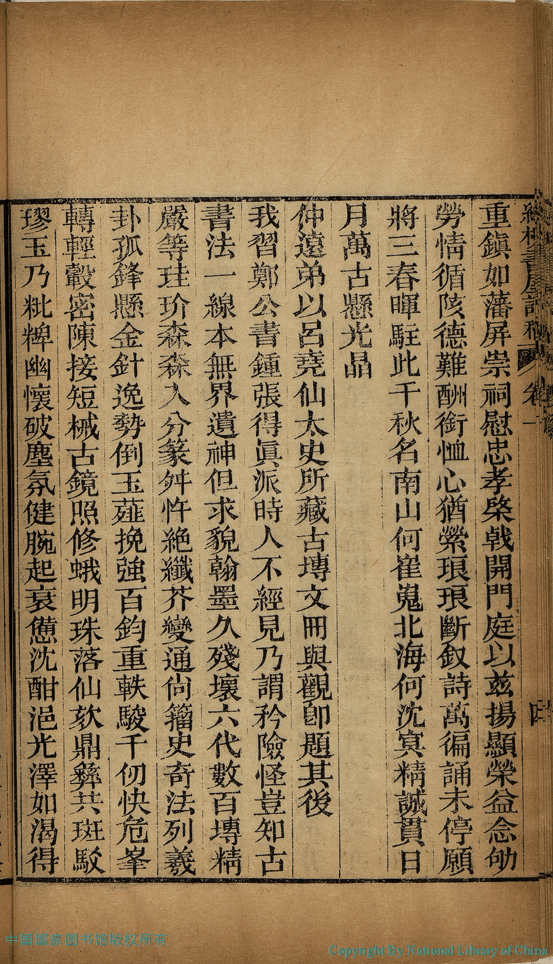 重鎮如藩屏崇祠慰忠孝棨戟開門庭以玆揚顯榮益念劬
勞情循陔德難酬銜恤心猶縈琅琅斷釵詩萬徧誦未停願
將三春暉駐此千秋名南山何崔嵬北海何沈㝠精誠貫日
月萬古懸光晶
仲遠弟以呂堯仙太史所藏古塼文冊與觀卽題其後
我習鄭公書鍾張得眞派時人不經見乃謂矜險怪豈知古
書法一線本無界遺神但求貌翰墨久殘壞六代數百塼精
嚴等珪玠森森入分篆舛忤絶纖芥變通尙籀史奇法列羲
卦孤鋒懸金針逸勢倒玉薤挽強百鈞重軼駿千仞快危峯
轉輕轂密陳接短械古鏡照修蛾明珠落仙欬鼎彝共斑駁
璆玉乃粃粺幽懷破塵氛健腕起衰憊沈酣浥光澤如渴得
卷一
四
中国国家图书馆版权所有
Copyright By National Library of China